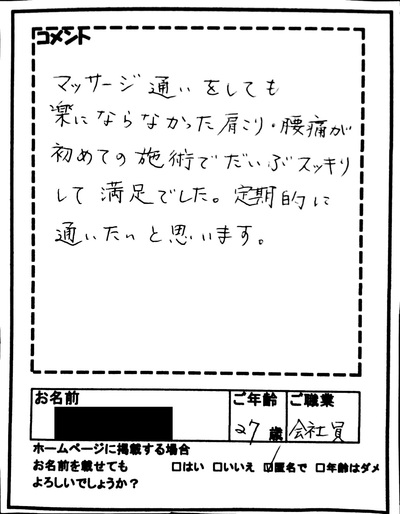 コメント
マッサージ通いをしても
楽にならなかった肩こり・腰痛が
初めての施術でだいぶスッキリ
して満足でした。定期的に
通いたいと思います。
お名前 ご年齢 ご職業
27歳 会社員
ホームページに掲載する場合
お名前を載せても □はい □いいえ ☑匿名で □年齢はダメ
よろしいでしょうか？